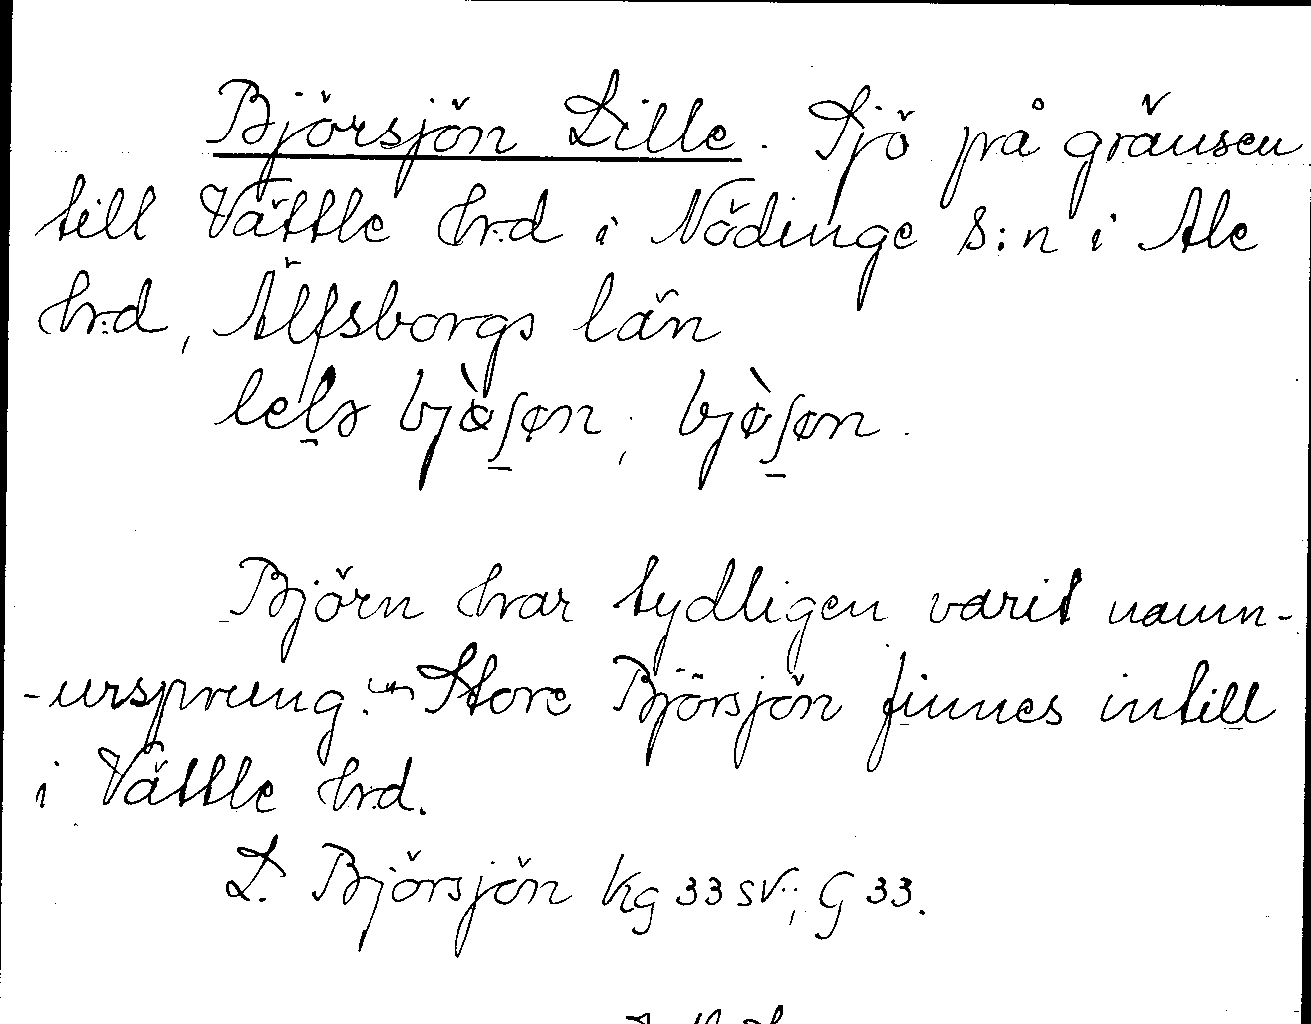 Björsjön Lille. Sjö på gränsen
till Vättle hrd i Nödinge s:n i Ale
hrd, Älfsborgs län
Björn har tydligen varit namn-
-ursprung. Store Björsjön finnes intill
i Vättle hrd.
L. Björsjön Kg 33 SV; G 33.